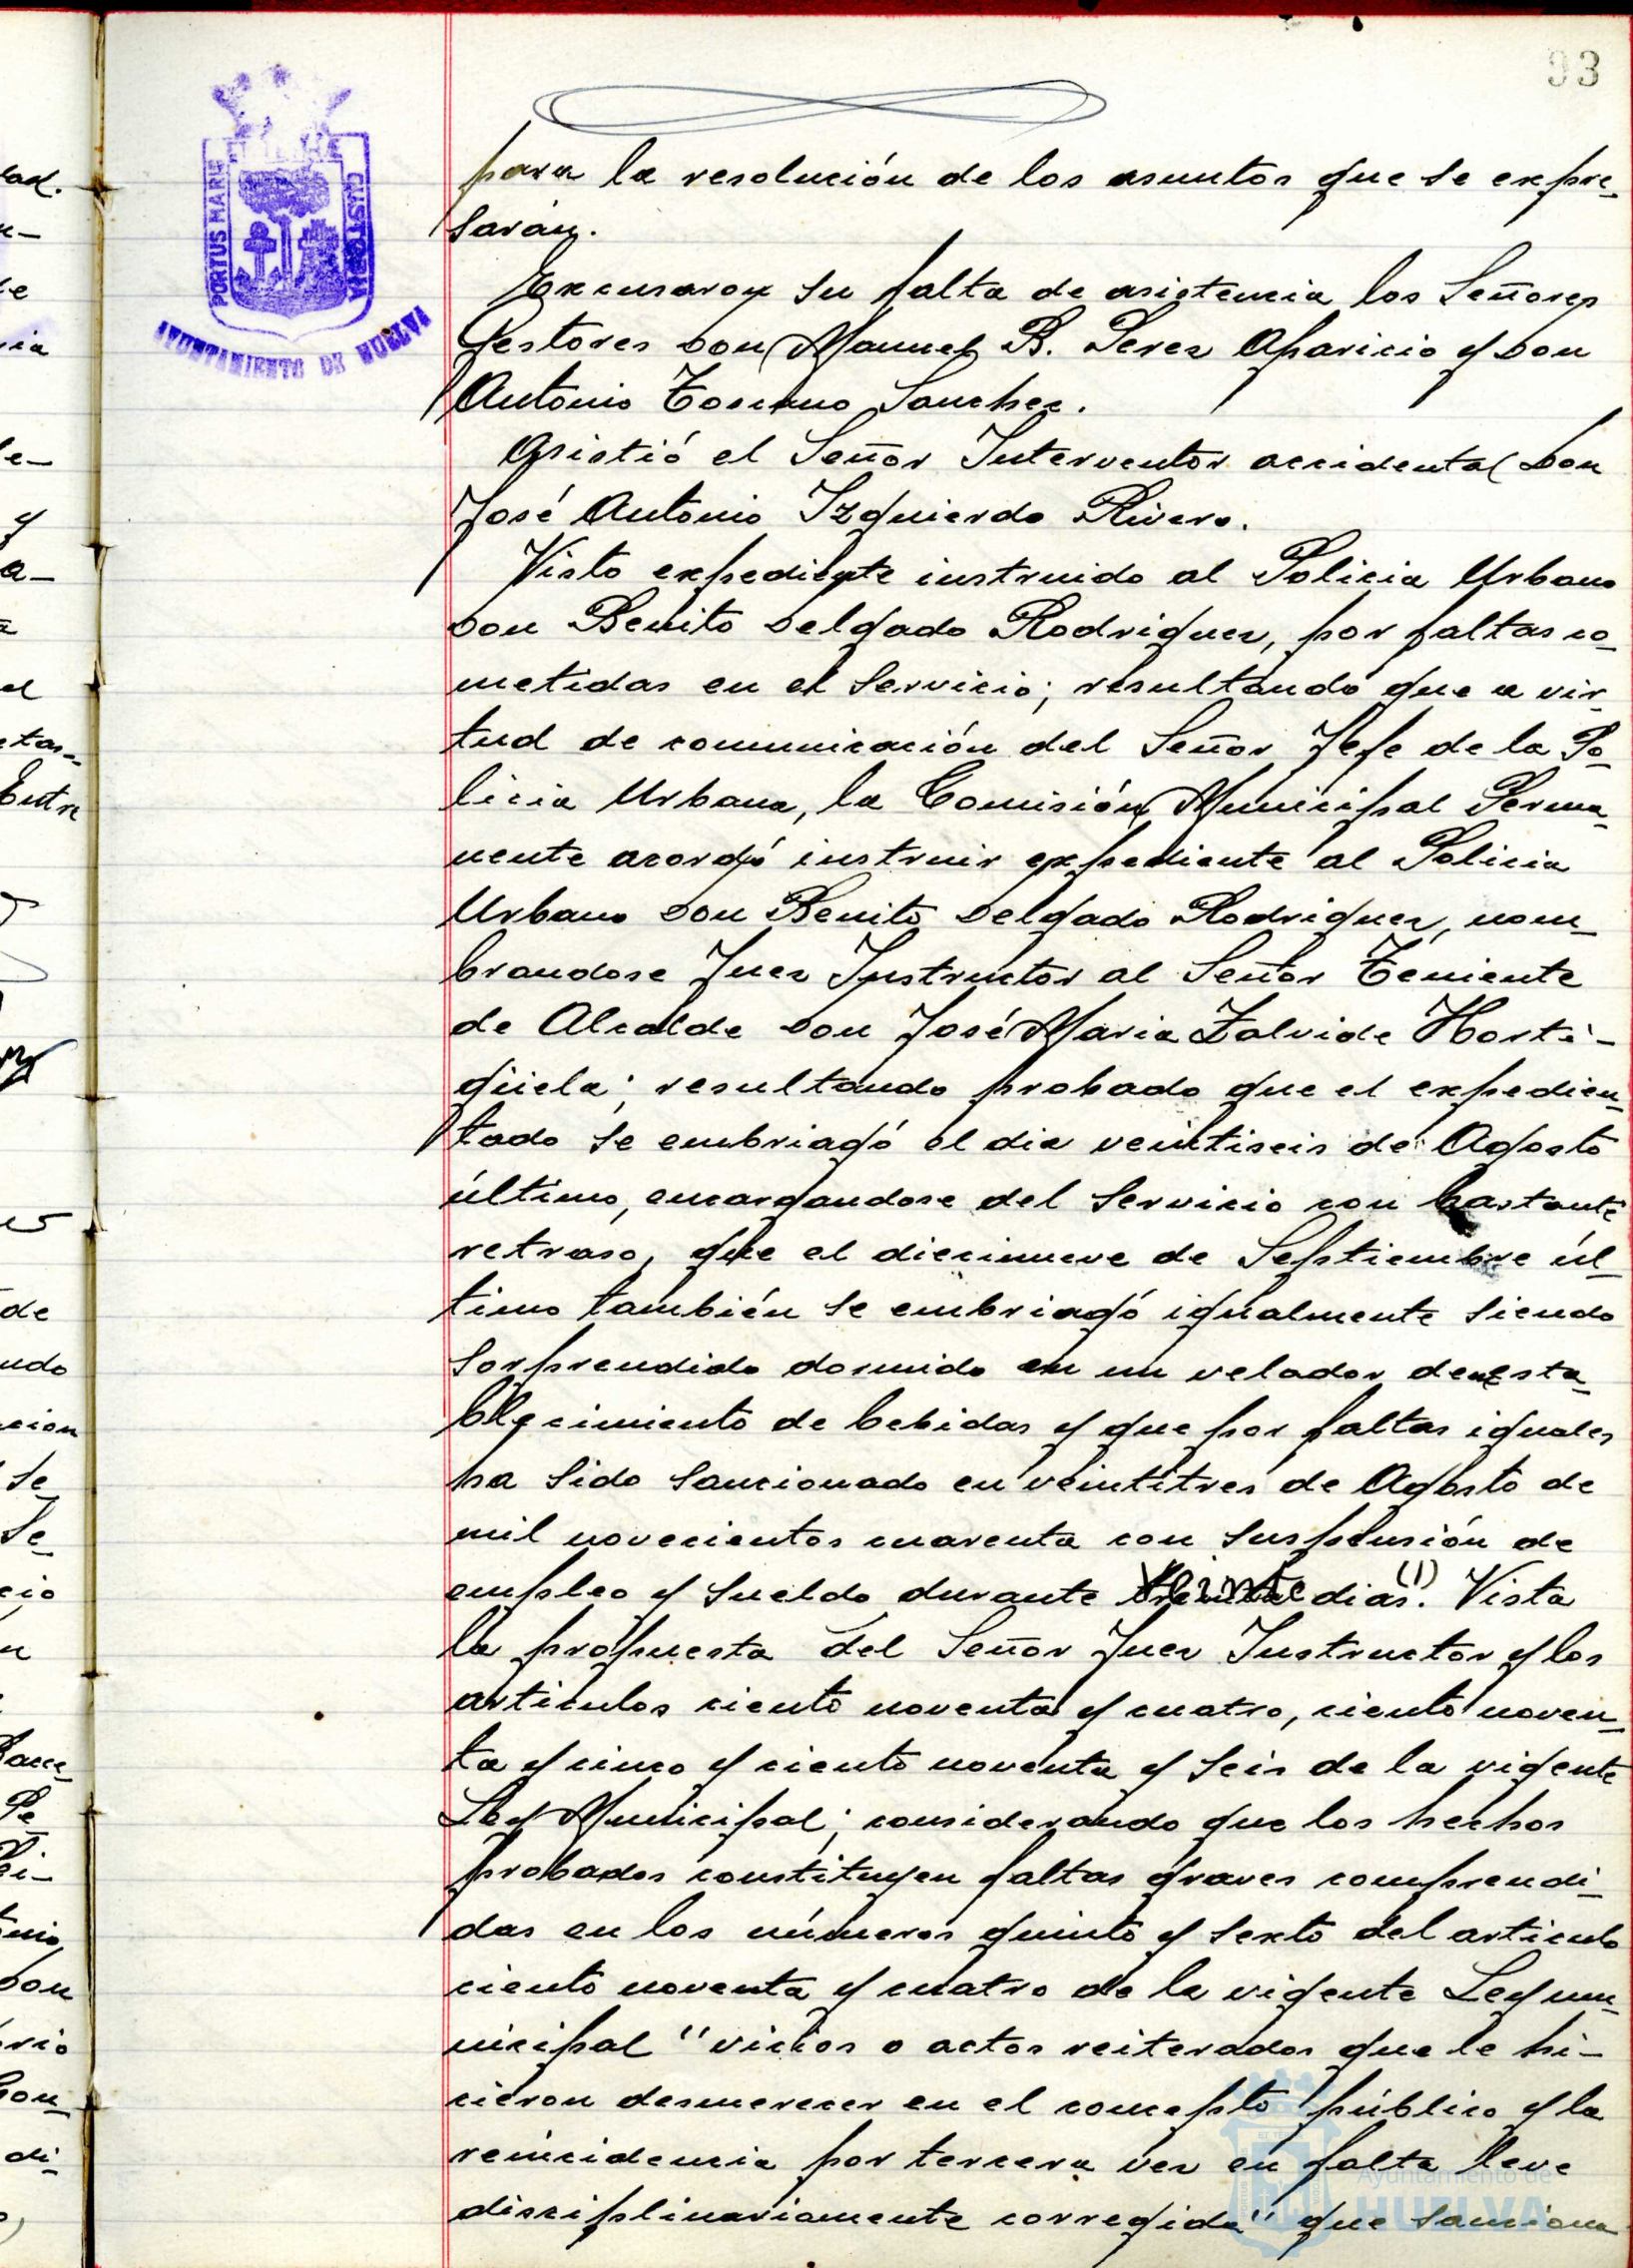 93
PORTUS MARIS
CUSTODIA
AYUNTAMIENTO DE HUELVA
para la resolución de los asuntos que se expre-
sarán.
Excusaron su falta de asistencia los Señores
Gestores Don Manuel B. Perez Aparicio y Don
Antonio Toscano Sanchez.
Asistió el Señor Interventor accidental Don
José Antonio Izquierdo Rivero.
Visto expediente instruido al Policia Urbano
Don Benito Delgado Rodriguez, por faltas co-
metidas en el servicio; resultando que a vir-
tud de comunicación del Señor Jefe de la Po-
licia Urbana, la Comisión Municipal Perma-
nente acordó instruir expediente al Policia
Urbano Don Benito Delgado Rodriguez, nom-
brandose Juez Instructor al Señor Teniente
de Alcalde Don José Maria Zalvide Horti-
güela; resultando probado que el expedien-
tado se embriagó el dia veintiseis de Agosto
último, encargandose del servicio con bastante
retraso, que el diecinueve de Septiembre úl-
timo también se embriagó igualmente siendo
sorprendido dormido en un velador de esta-
blecimiento de bebidas y que por faltas iguales
ha sido sancionado en veintitres de Agosto de
mil novecientos cuarenta con suspensión de
empleo y sueldo durante dias. (1) Vista
la propuesta del Señor Juez Instructor y los
articulos ciento noventa y cuatro, ciento noven-
ta y cinco y ciento noventa y seis de la vigente
Ley Municipal; considerando que los hechos
probados constituyen faltas graves comprendi-
das en los números quinto y sexto del articulo
ciento noventa y cuatro de la vigente Ley mu-
nicipal "vicios o actos reiterados que le hi-
cieron desmerecer en el concepto público y la
reincidencia por tercera vez en falta leve
disciplinariamente corregida" que sanciona
Ayuntamiento de
HUELVA